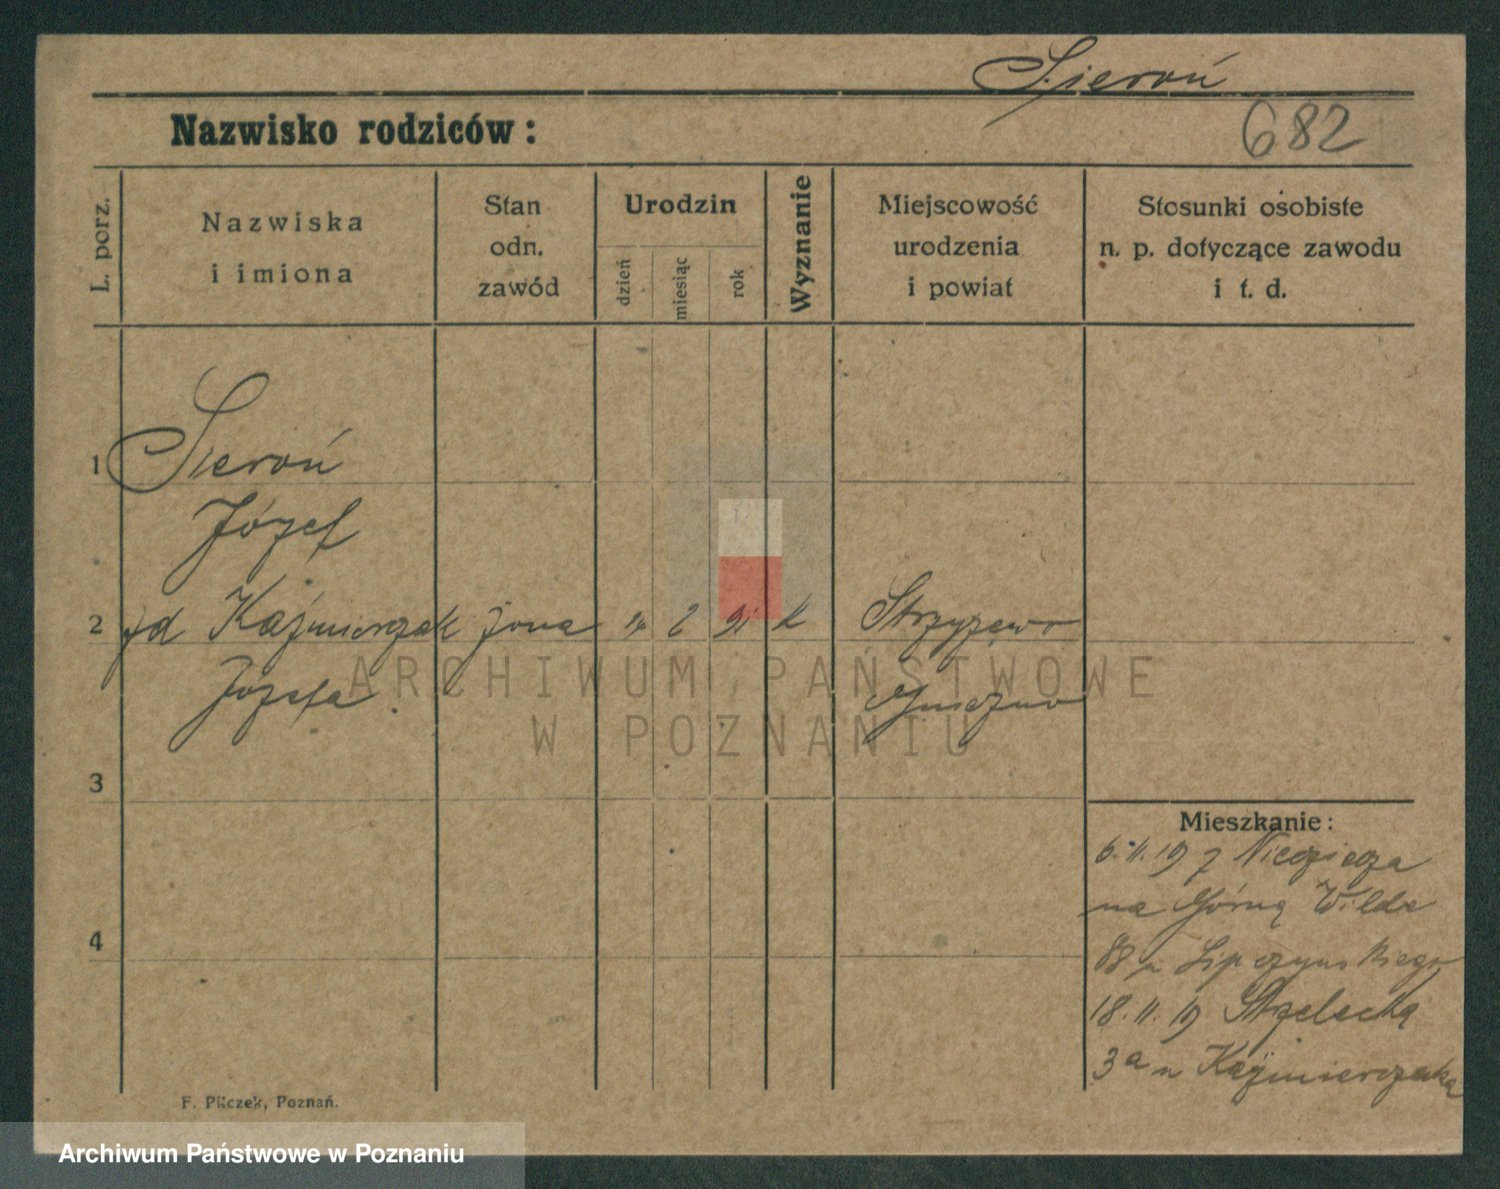 Sieroń
682
Nazwisko rodziców:
L. porz.
Nazwiska
i imiona
Stan
odn.
zawód
Urodzin
dzień
miesiąc
rok
Wyznanie
Miejscowość
urodzenia
i powiat
Stosunki osobiste
n. p. dotyczące zawodu
i t. d.
1 Sieroń
Józef
2 Kaźmierczak żona 2 91 k Strzyżewo
Józefa Gniezno
3
4
Mieszkanie:
6.11.19 z Niedzicza
na Górną Wilde
88 u Lipczynskiego
18.11.19 Strzelecką
3a u Kaźmierczaka
F. Pilczek, Poznań.
ARCHIWUM PAŃSTWOWE
W POZNANIU
Archiwum Państwowe w Poznaniu